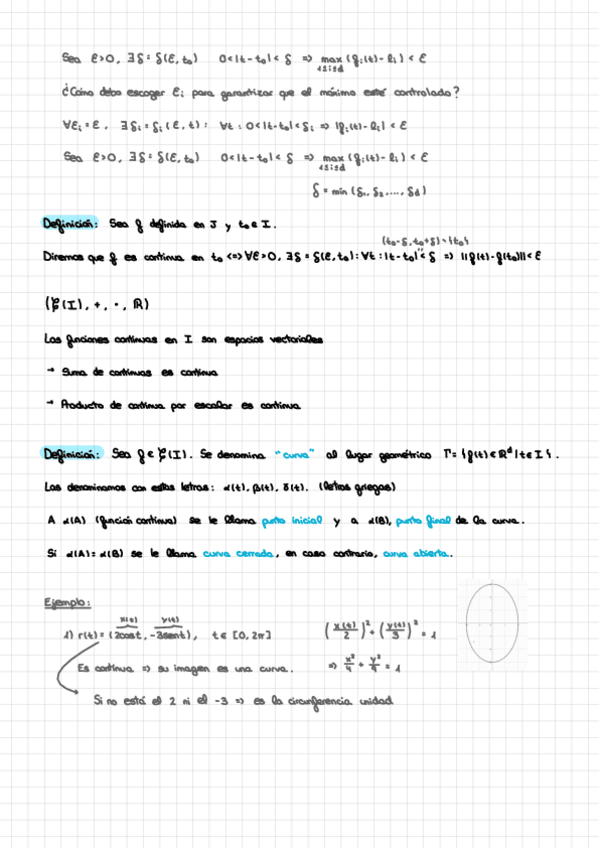 Sea ε>0, ∃δ = δ(ε, t₀) 0<|t-t₀|<δ => max (f_i(t)-l_i) < ε
1≤i≤d
¿Cómo debo escoger ε_i para garantizar que el máximo esté controlado?
∀ε_i = ε, ∃δ_i = δ_i(ε, t): ∀t: 0<|t-t₀|<δ_i => |f_i(t)-l_i| < ε
Sea ε>0, ∃δ = δ(ε, t₀) 0<|t-t₀|<δ => max (f_i(t)-l_i) < ε
1≤i≤d
δ = min (δ₁, δ₂, ..., δd)
Definición: Sea f definida en I y t₀ ∈ I.
(t₀-δ, t₀+δ)-{t₀}
Diremos que f es continua en t₀ <=> ∀ε>0, ∃δ = δ(ε, t₀): ∀t: |t-t₀|<δ => ||f(t)-f(t₀)|| < ε
(ℒ(I), +, ·, ℝ)
Las funciones continuas en I son espacios vectoriales
→ Suma de continuas es continua
→ Producto de continua por escalar es continua
Definición: Sea f ∈ ℒ(I). Se denomina "curva" al lugar geométrico Γ = {f(t) ∈ ℝᵈ / t ∈ I}.
Las denominamos con estas letras: α(t), β(t), γ(t). (letras griegas)
A α(A) (función continua) se le llama punto inicial y a α(B), punto final de la curva.
Si α(A) = α(B) se le llama curva cerrada, en caso contrario, curva abierta.
Ejemplo:
x(t) y(t)
1) r(t) = (2cost, -3sent), t ∈ [0, 2π] (x(t)/2)² + (y(t)/3)² = 1
Es continua => su imagen es una curva. => x²/4 + y²/9 = 1
Si no está el 2 ni el -3 => es la circunferencia unidad